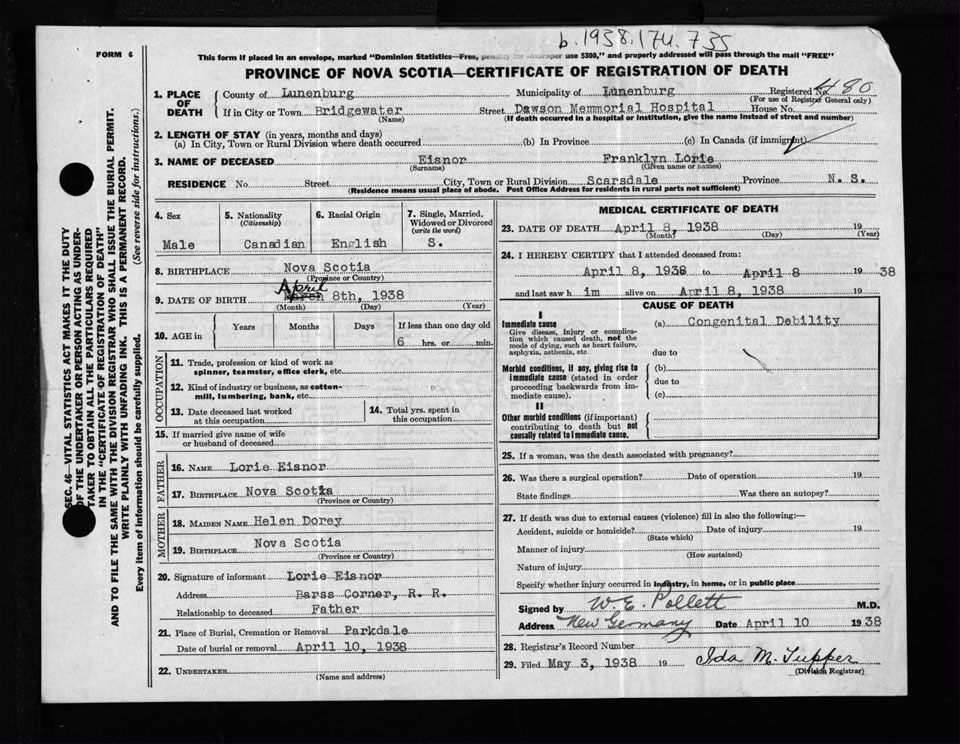 b.1938.174.735
FORM 6
This form if placed in an envelope, marked "Dominion Statistics—Free, penalty for improper use $300," and properly addressed will pass through the mail "FREE"
PROVINCE OF NOVA SCOTIA—CERTIFICATE OF REGISTRATION OF DEATH
1. PLACE OF DEATH
County of Lunenburg Municipality of Lunenburg Registered No. 480
(For use of Registrar General only)
If in City or Town Bridgewater Street Dawson Memmorial Hospital House No.
(Name) (If death occurred in a hospital or institution, give the name instead of street and number)
2. LENGTH OF STAY (in years, months and days)
(a) In City, Town or Rural Division where death occurred (b) In Province (c) In Canada (if immigrant)
3. NAME OF DECEASED Eisnor Franklyn Lorie
(Surname) (Given name or names)
RESIDENCE No. Street City, Town or Rural Division Scarsdale Province N. S.
(Residence means usual place of abode. Post Office Address for residents in rural parts not sufficient)
4. Sex
Male
5. Nationality
(Citizenship)
Canadian
6. Racial Origin
English
7. Single, Married, Widowed or Divorced
(write the word)
S.
8. BIRTHPLACE Nova Scotia
(Province or Country)
April
9. DATE OF BIRTH March 8th, 1938
(Month) (Day) (Year)
10. AGE in Years Months Days If less than one day old
6 hrs. or min.
OCCUPATION
11. Trade, profession or kind of work as
spinner, teamster, office clerk, etc.
12. Kind of industry or business, as cotton-
mill, lumbering, bank, etc.
13. Date deceased last worked
at this occupation
14. Total yrs. spent in
this occupation
15. If married give name of wife
or husband of deceased
FATHER
16. NAME Lorie Eisnor
17. BIRTHPLACE Nova Scotia
(Province or Country)
MOTHER
18. MAIDEN NAME Helen Dorey
19. BIRTHPLACE Nova Scotia
(Province or Country)
20. Signature of informant Lorie Eisnor
Address Barss Corner, R. R.
Relationship to deceased Father
21. Place of Burial, Cremation or Removal Parkdale
Date of burial or removal April 10, 1938
22. UNDERTAKER
(Name and address)
MEDICAL CERTIFICATE OF DEATH
23. DATE OF DEATH April 8, 1938
(Month) (Day) (Year)
24. I HEREBY CERTIFY that I attended deceased from:
April 8, 1938 to April 8 19 38
and last saw h im alive on April 8, 1938 19
CAUSE OF DEATH
I
Immediate cause (a) Congenital Debility
Give disease, injury or complica-
tion which caused death, not the
mode of dying, such as heart failure,
asphyxia, asthenia, etc.
due to
Morbid conditions, if any, giving rise to
immediate cause (stated in order
proceeding backwards from im-
mediate cause).
(b)
due to
(c)
II
Other morbid conditions (if important)
contributing to death but not
causally related to immediate cause.
25. If a woman, was the death associated with pregnancy?
26. Was there a surgical operation? Date of operation 19
State findings Was there an autopsy?
27. If death was due to external causes (violence) fill in also the following:—
Accident, suicide or homicide? Date of injury 19
(State which)
Manner of injury
(How sustained)
Nature of injury
Specify whether injury occurred in industry, in home, or in public place
Signed by W. E. Pollett M.D.
Address New Germany Date April 10 1938
28. Registrar's Record Number
29. Filed May 3, 1938 19 Ida M. Tupper
(Division Registrar)
SEC. 46—VITAL STATISTICS ACT MAKES IT THE DUTY
OF THE UNDERTAKER OR PERSON ACTING AS UNDER-
TAKER TO OBTAIN ALL THE PARTICULARS REQUIRED
IN THE "CERTIFICATE OF REGISTRATION OF DEATH"
AND TO FILE THE SAME WITH THE DIVISION REGISTRAR WHO SHALL ISSUE THE BURIAL PERMIT.
WRITE PLAINLY WITH UNFADING INK. THIS IS A PERMANENT RECORD.
Every item of information should be carefully supplied. (See reverse side for instructions.)